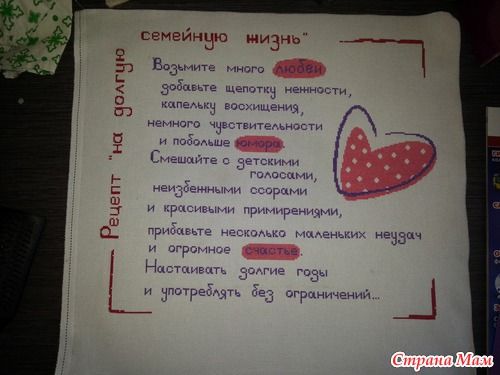 Рецепт "на долгую
семейную жизнь"
Возьмите много любви
добавьте щепотку ненности,
капельку восхищения,
немного чувствительности
и побольше юмора.
Смешайте с детскими
голосами,
неизбенными ссорами
и красивыми примирениями,
прибавьте несколько маленьких неудач
и огромное счастье.
Настаивать долгие годы
и употреблять без ограничений...
Страна Мам